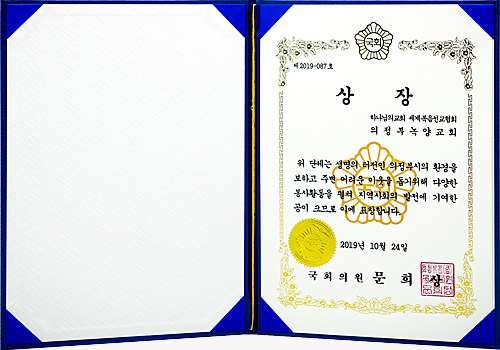 국회
제2019-087호
상 장
하나님의교회 세계복음선교협회
의정부녹양교회
위 단체는 생명의 터전인 의정부시의 환경을
보하고 주변 어려운 이웃을 돕기위해 다양한
봉사활동을 펼쳐 지역사회의 발전에 기여한
공이 크므로 이에 표창합니다.
2019년 10월 24일
국회의원 문 희 상